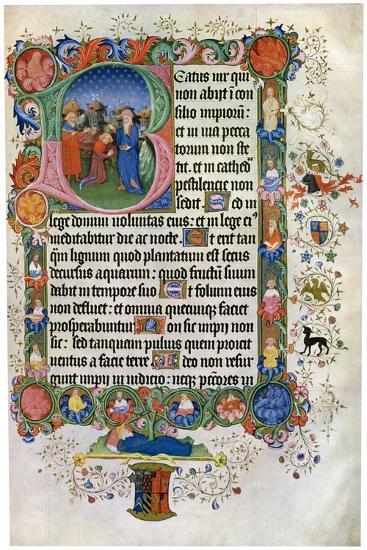 Beatus uir qui
non abijt i con
silio impiorum:
et in uia pecca
torum non ste
tit: et in cathed
pestilencie non
sedit. Sed in
lege domini uoluntas eius: et in lege ei
meditabitur die ac nocte. Et erit tan
qm lignum quod plantatum est secus
decursus aquarum: quod fructu suum
dabit in tempore suo. Et folium eius
non defluet: et omnia quecumq faciet
prosperabuntur. Non sic impij non
sic: sed tanquam puluis quem proicit
uentus a facie terre. Ideo non resur
gunt impij in iudicio: neqz pccores in